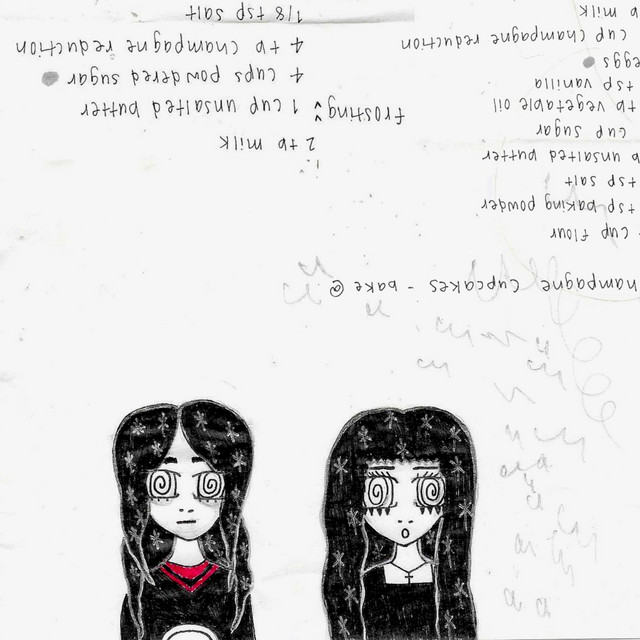 hampagne Cupcakes - bake @
cup flour
tsp baking powder
tsp salt
b unsalted butter
cup sugar
tb vegetable oil
tsp vanilla
eggs
cup champagne reduction
b milk
2 tb milk
frosting: 1 cup unsalted butter
4 cups powdered sugar
4 tb champagne reduction
1/8 tsp salt